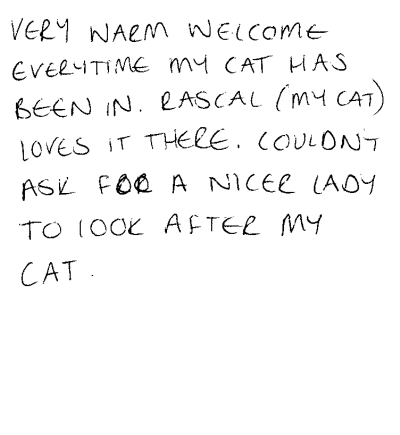 VERY WARM WELCOME
EVERYTIME MY CAT HAS
BEEN IN. RASCAL (MY CAT)
LOVES IT THERE. COULDNT
ASK FOR A NICER LADY
TO LOOK AFTER MY
CAT.